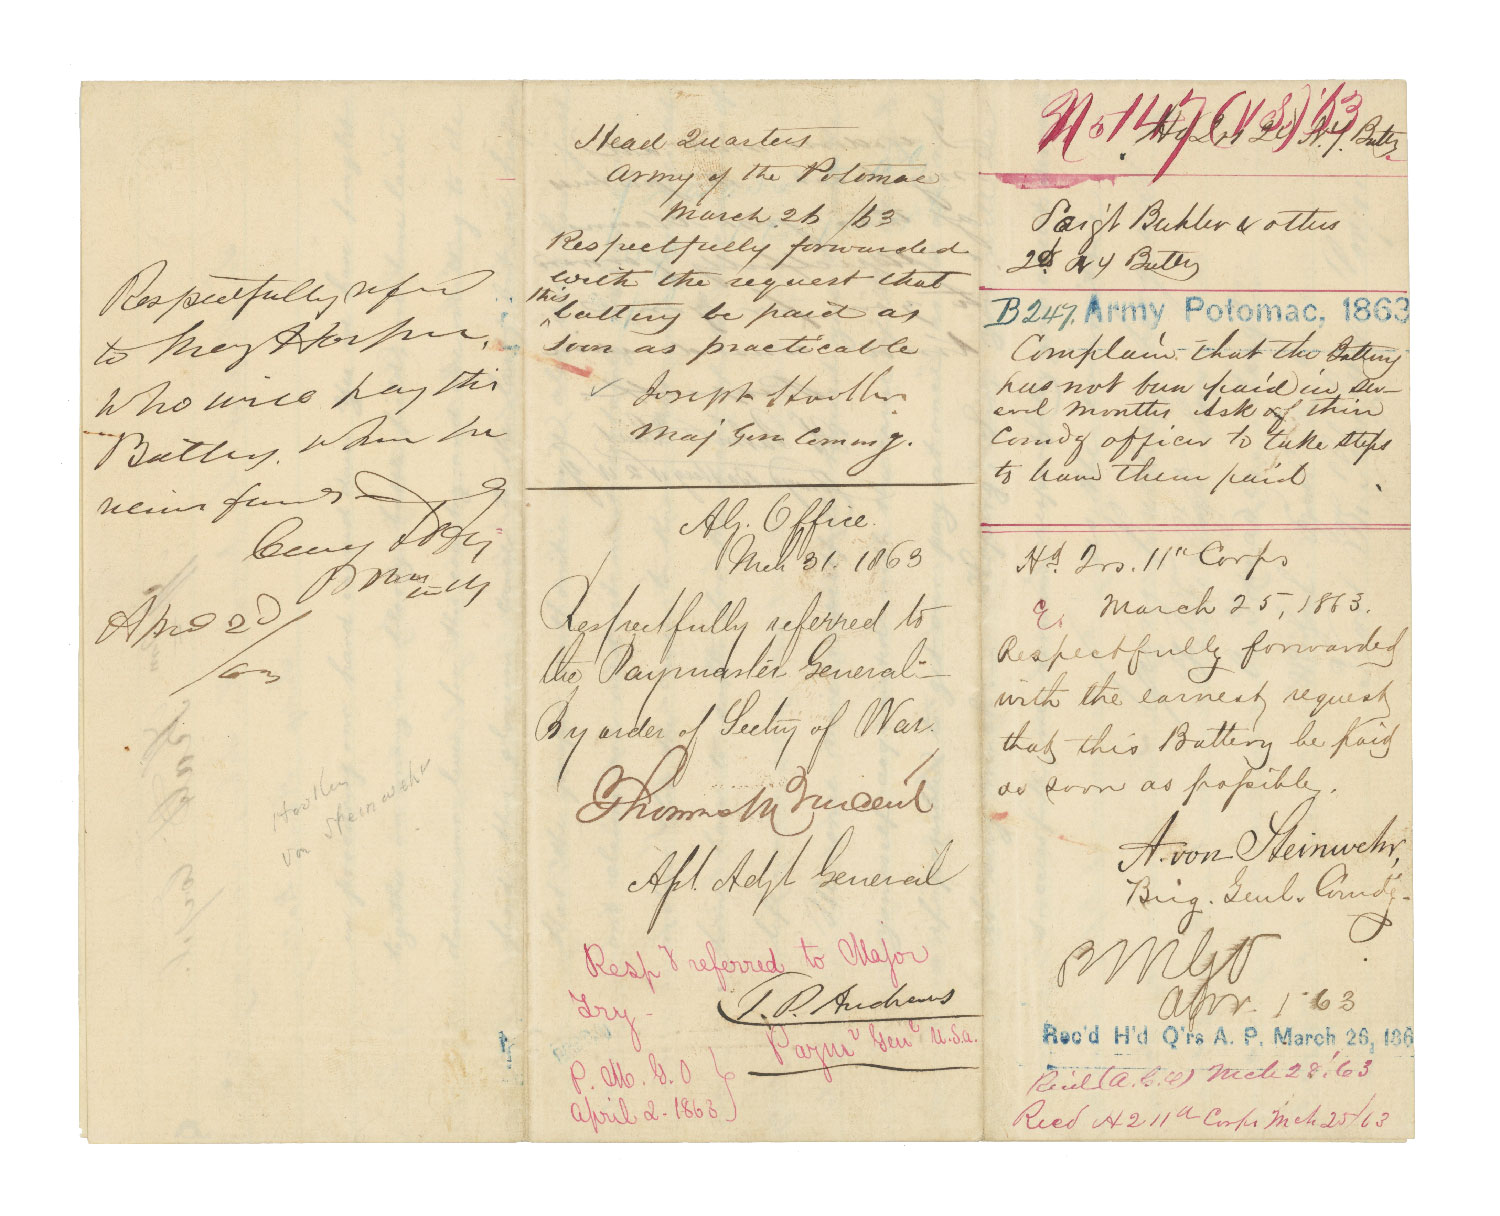 Respectfully refer
to Maj
who will pay this
Battery. when he
funds

April 2d
/63
Hooker
von Steinwehr
Head Quarters
Army of the Potomac
March 26 /63
Respectfully forwarded
with the request that
this
battery be paid as
soon as practicable
Joseph Hooker
Maj Gen Comdg.
AG. Office.
Mch 31. 1863
Respectfully referred to
the Paymaster General—
By order of Secty of War.
Thomas M Vincent
Asst. Adjt General
Resp y referred to Major
Fry—
T. P. Andrews
Paymr Genl U.S.A.
P. M. G. O
April 2. 1863
No 147 (V S) 63
Hd Qrs 2d N.Y. Batty
Sergt Buhler & others
2d N Y Battery
B 247. Army Potomac, 1863
Complain that the Battery
has not been paid in sev-
eral months Ask of their
Comdg officer to take steps
to have them paid
Hd. Qrs. 11th Corps
March 25, 1863.
Respectfully forwarded
with the earnest request
that this Battery be paid
as soon as possible.
A. von Steinwehr,
Brig. Genl. Comdg.
P M G O
Apr. 1 63
Rec'd H'd Q'rs A. P. March 26, 186
Recd (A. G. O) Mch 28, 63
Recd H Q 11th Corps Mch 25/63